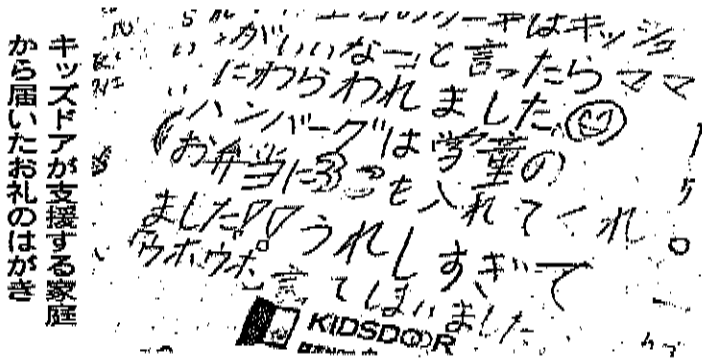 ーキはキッシュ
がいいなーっと言ったらママ
にわらわれました。
ハンバーグは学童の
お弁当に3こも入れてくれ
ました!! うれしすぎて
「ウホウホ」言てしまいました。
KIDSDOOR
キッズドアが支援する家庭
から届いたお礼のはがき